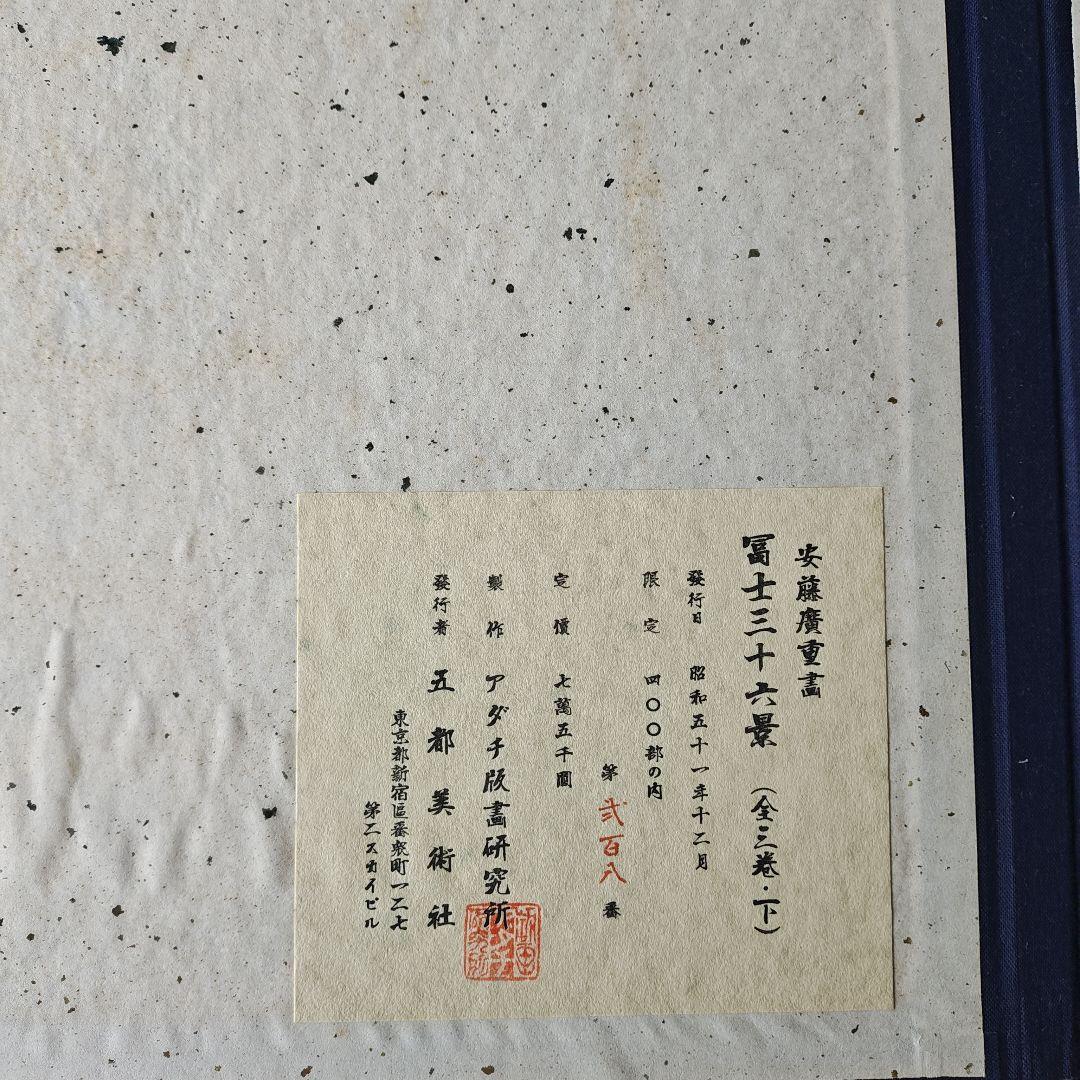 安藤廣重畵
冨士三十六景 (全三巻・下)
發行日 昭和五十一年十二月
限定 四〇〇部の内
第弐百八番
定價 七萬五千圓
製作 アダチ版畵研究所
發行者 五都美術社
東京都新宿區番衆町一二七
第二スカイビル